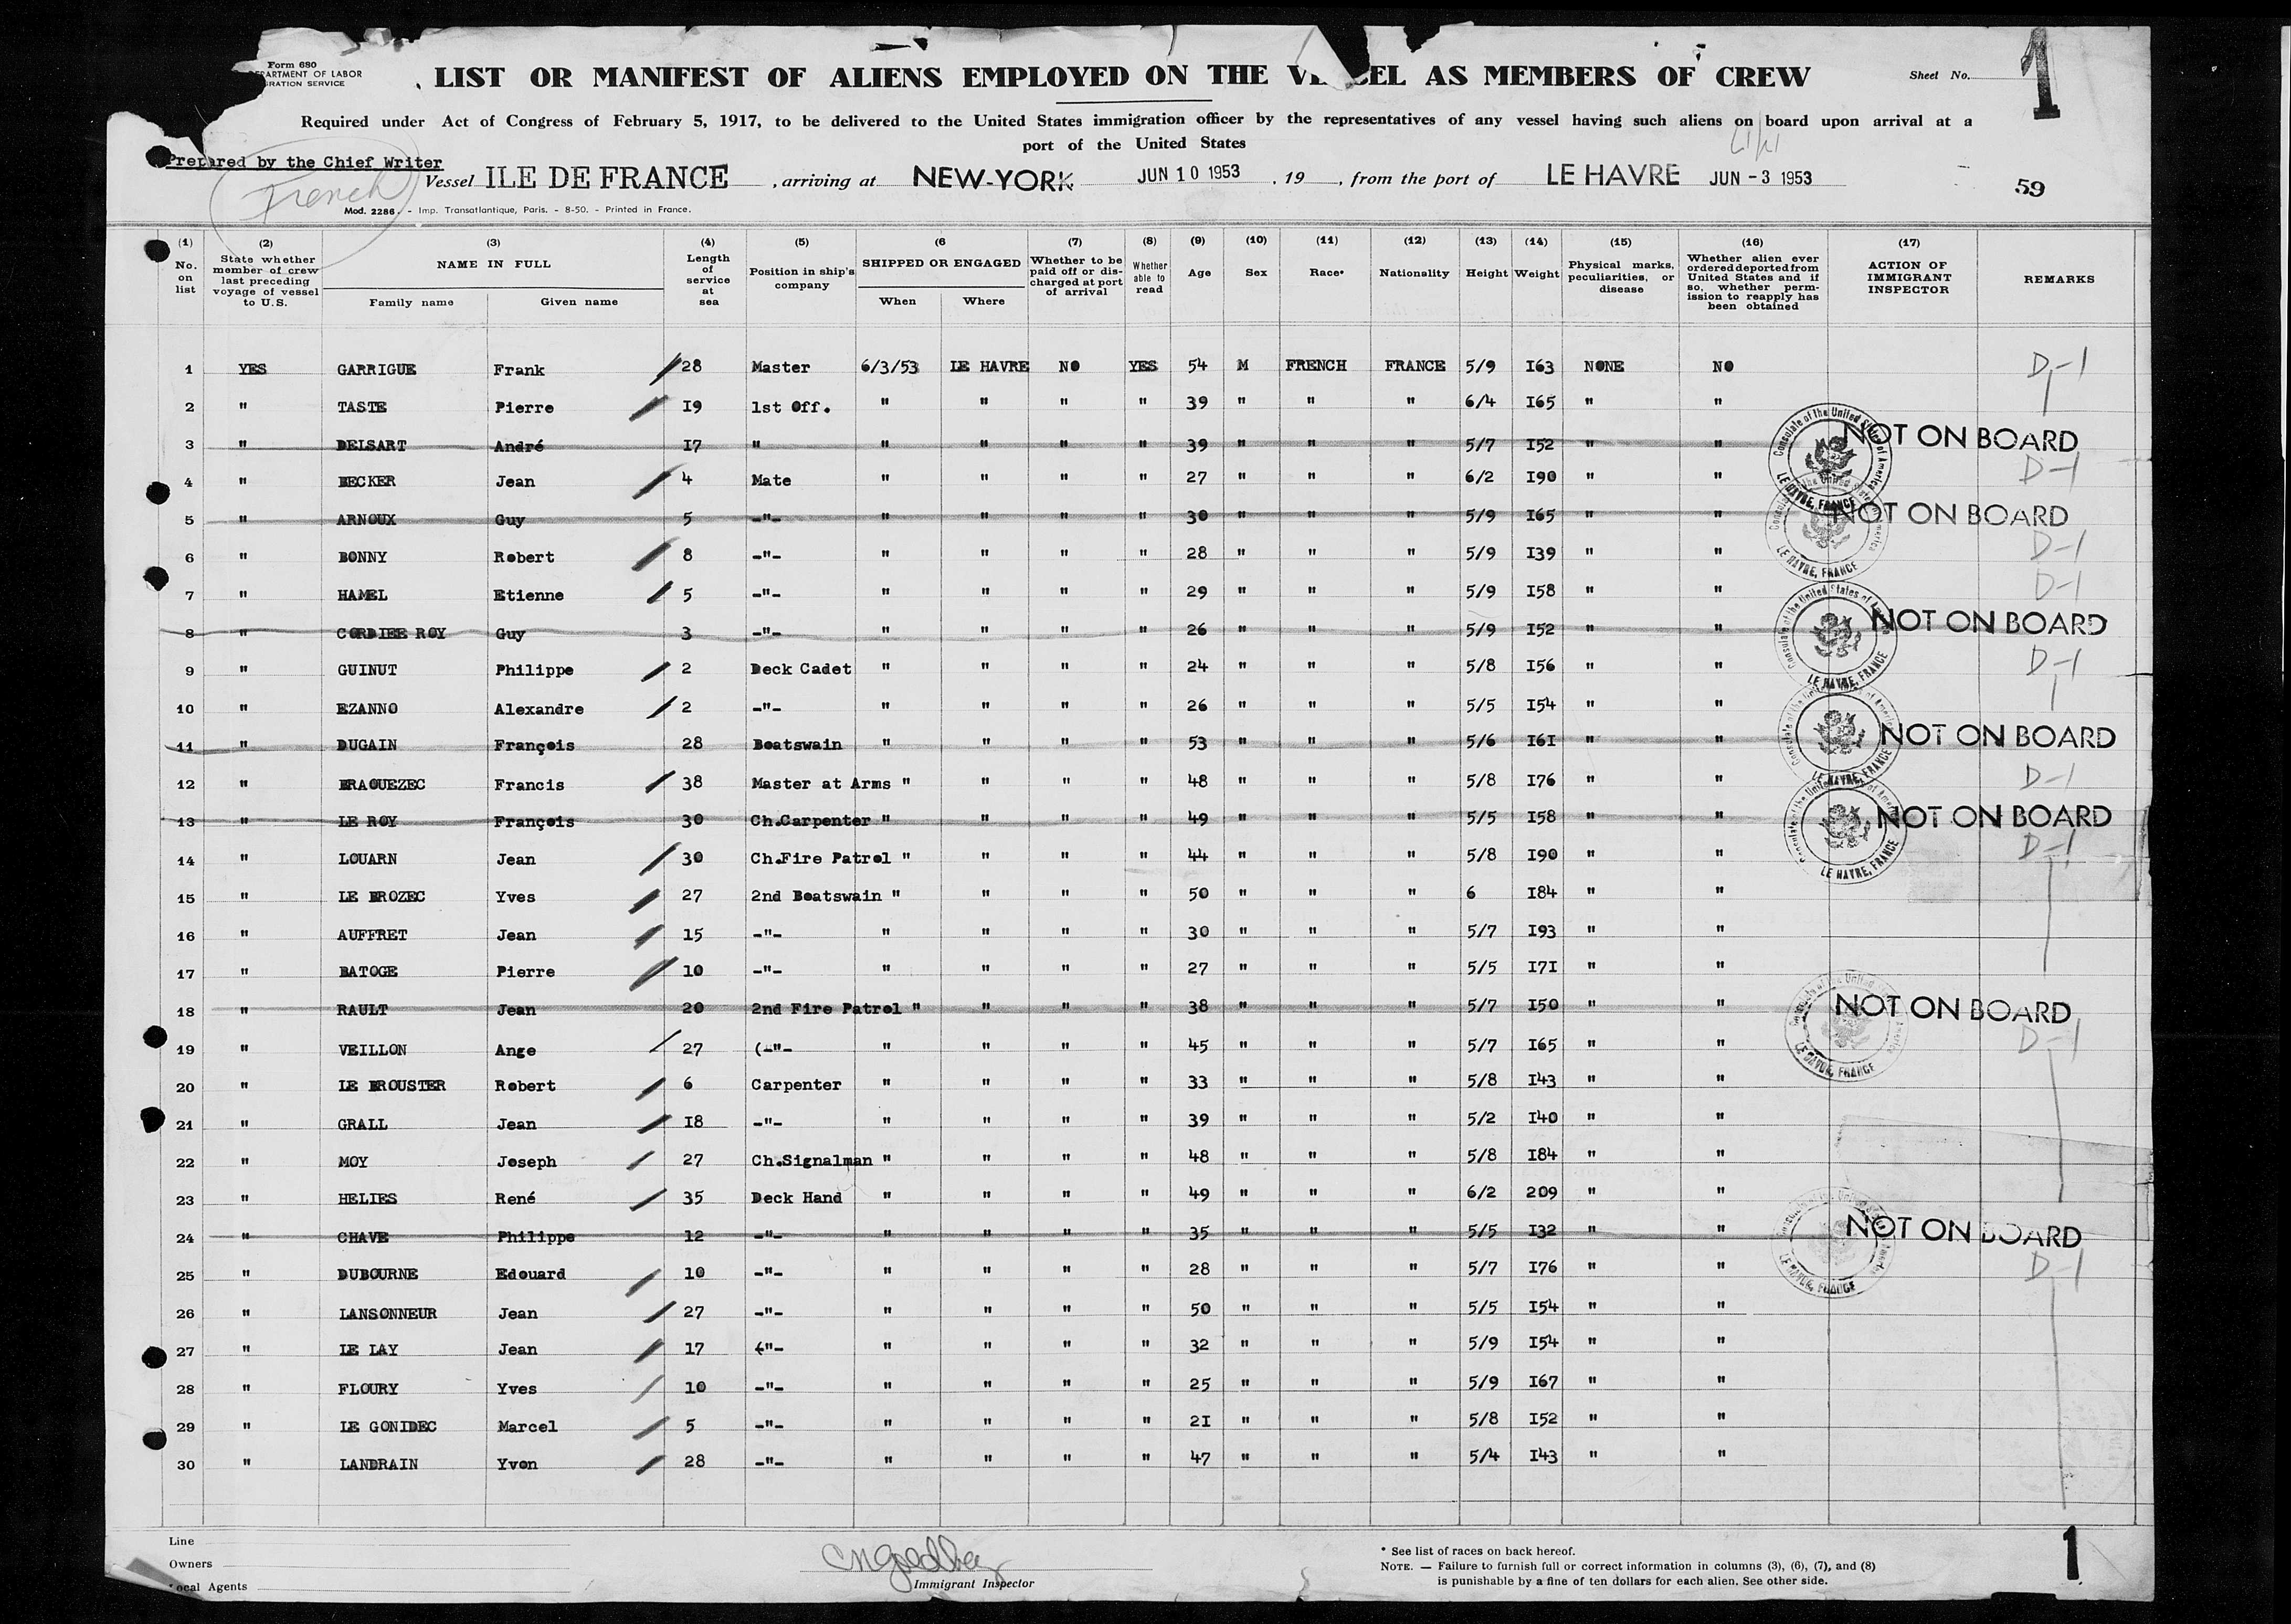 Form 680
DEPARTMENT OF LABOR
IGRATION SERVICE
LIST OR MANIFEST OF ALIENS EMPLOYED ON THE VESSEL AS MEMBERS OF CREW
Sheet No. 1
Required under Act of Congress of February 5, 1917, to be delivered to the United States immigration officer by the representatives of any vessel having such aliens on board upon arrival at a
port of the United States
Prepared by the Chief Writer
French
Vessel ILE DE FRANCE, arriving at NEW-YORK JUN 10 1953, 19, from the port of LE HAVRE JUN -3 1953
59
Mod. 2286. - Imp. Transatlantique, Paris. - 8-50. - Printed in France.
(1) No. on list (2) State whether member of crew last preceding voyage of vessel to U.S. (3) NAME IN FULL Family name Given name (4) Length of service at sea (5) Position in ship's company (6 SHIPPED OR ENGAGED When Where (7) Whether to be paid off or discharged at port of arrival (8) Whether able to read (9) Age (10) Sex (11) Race* (12) Nationality (13) Height (14) Weight (15) Physical marks, peculiarities, or disease (16) Whether alien ever ordered deported from United States and if so, whether permission to reapply has been obtained (17) ACTION OF IMMIGRANT INSPECTOR REMARKS
1 YES GARRIGUE Frank 28 Master 6/3/53 LE HAVRE NO YES 54 M FRENCH FRANCE 5/9 I63 NONE NO D-1
2 " TASTE Pierre I9 1st Off. " " " " 39 " " " 6/4 I65 " "
3 " DELSART André I7 " " " " " 39 " " " 5/7 I52 " " NOT ON BOARD
4 " BECKER Jean 4 Mate " " " " 27 " " " 6/2 I90 " " D-1
5 " ARNOUX Guy 5 -"- " " " " 30 " " " 5/9 I65 " " NOT ON BOARD
6 " BONNY Robert 8 -"- " " " " 28 " " " 5/9 I39 " " D-1
7 " HAMEL Etienne 5 -"- " " " " 29 " " " 5/9 I58 " " D-1
8 " CORDIEE ROY Guy 3 -"- " " " " 26 " " " 5/9 I52 " " NOT ON BOARD
9 " GUINUT Philippe 2 Deck Cadet " " " " 24 " " " 5/8 I56 " " D-1
10 " EZANNO Alexandre 2 -"- " " " " 26 " " " 5/5 I54 " "
11 " DUGAIN François 28 Boatswain " " " " 53 " " " 5/6 I6I " " NOT ON BOARD
12 " BRAOUEZEC Francis 38 Master at Arms " " " " 48 " " " 5/8 I76 " " D-1
13 " LE ROY François 30 Ch.Carpenter " " " " 49 " " " 5/5 I58 " " NOT ON BOARD
14 " LOUARN Jean 30 Ch.Fire Patrol " " " " 44 " " " 5/8 I90 " " D-1
15 " LE BROZEC Yves 27 2nd Boatswain " " " " 50 " " " 6 I84 " "
16 " AUFFRET Jean 15 -"- " " " " 30 " " " 5/7 I93 " "
17 " BATOGE Pierre 10 -"- " " " " 27 " " " 5/5 I7I " "
18 " RAULT Jean 20 2nd Fire Patrol " " " " 38 " " " 5/7 I50 " " NOT ON BOARD
19 " VEILLON Ange 27 (-"- " " " " 45 " " " 5/7 I65 " " D-1
20 " LE BROUSTER Robert 6 Carpenter " " " " 33 " " " 5/8 I43 " "
21 " GRALL Jean I8 -"- " " " " 39 " " " 5/2 I40 " "
22 " MOY Joseph 27 Ch.Signalman " " " " 48 " " " 5/8 I84 " "
23 " HELIES René 35 Deck Hand " " " " 49 " " " 6/2 209 " "
24 " CHAVE Philippe 12 -"- " " " " 35 " " " 5/5 I32 " " NOT ON BOARD
25 " DUBOURNE Edouard 10 -"- " " " " 28 " " " 5/7 I76 " " D-1
26 " LANSONNEUR Jean 27 -"- " " " " 50 " " " 5/5 I54 " "
27 " LE LAY Jean 17 ("- " " " " 32 " " " 5/9 I54 " "
28 " FLOURY Yves 10 -"- " " " " 25 " " " 5/9 I67 " "
29 " LE GONIDEC Marcel 5 -"- " " " " 2I " " " 5/8 I52 " "
30 " LANDRAIN Yvon 28 -"- " " " " 47 " " " 5/4 I43 " "
Consulate of the United States of America
LE HAVRE, FRANCE
Line
Owners
Local Agents
Immigrant Inspector
* See list of races on back hereof.
NOTE. — Failure to furnish full or correct information in columns (3), (6), (7), and (8)
is punishable by a fine of ten dollars for each alien. See other side.
1